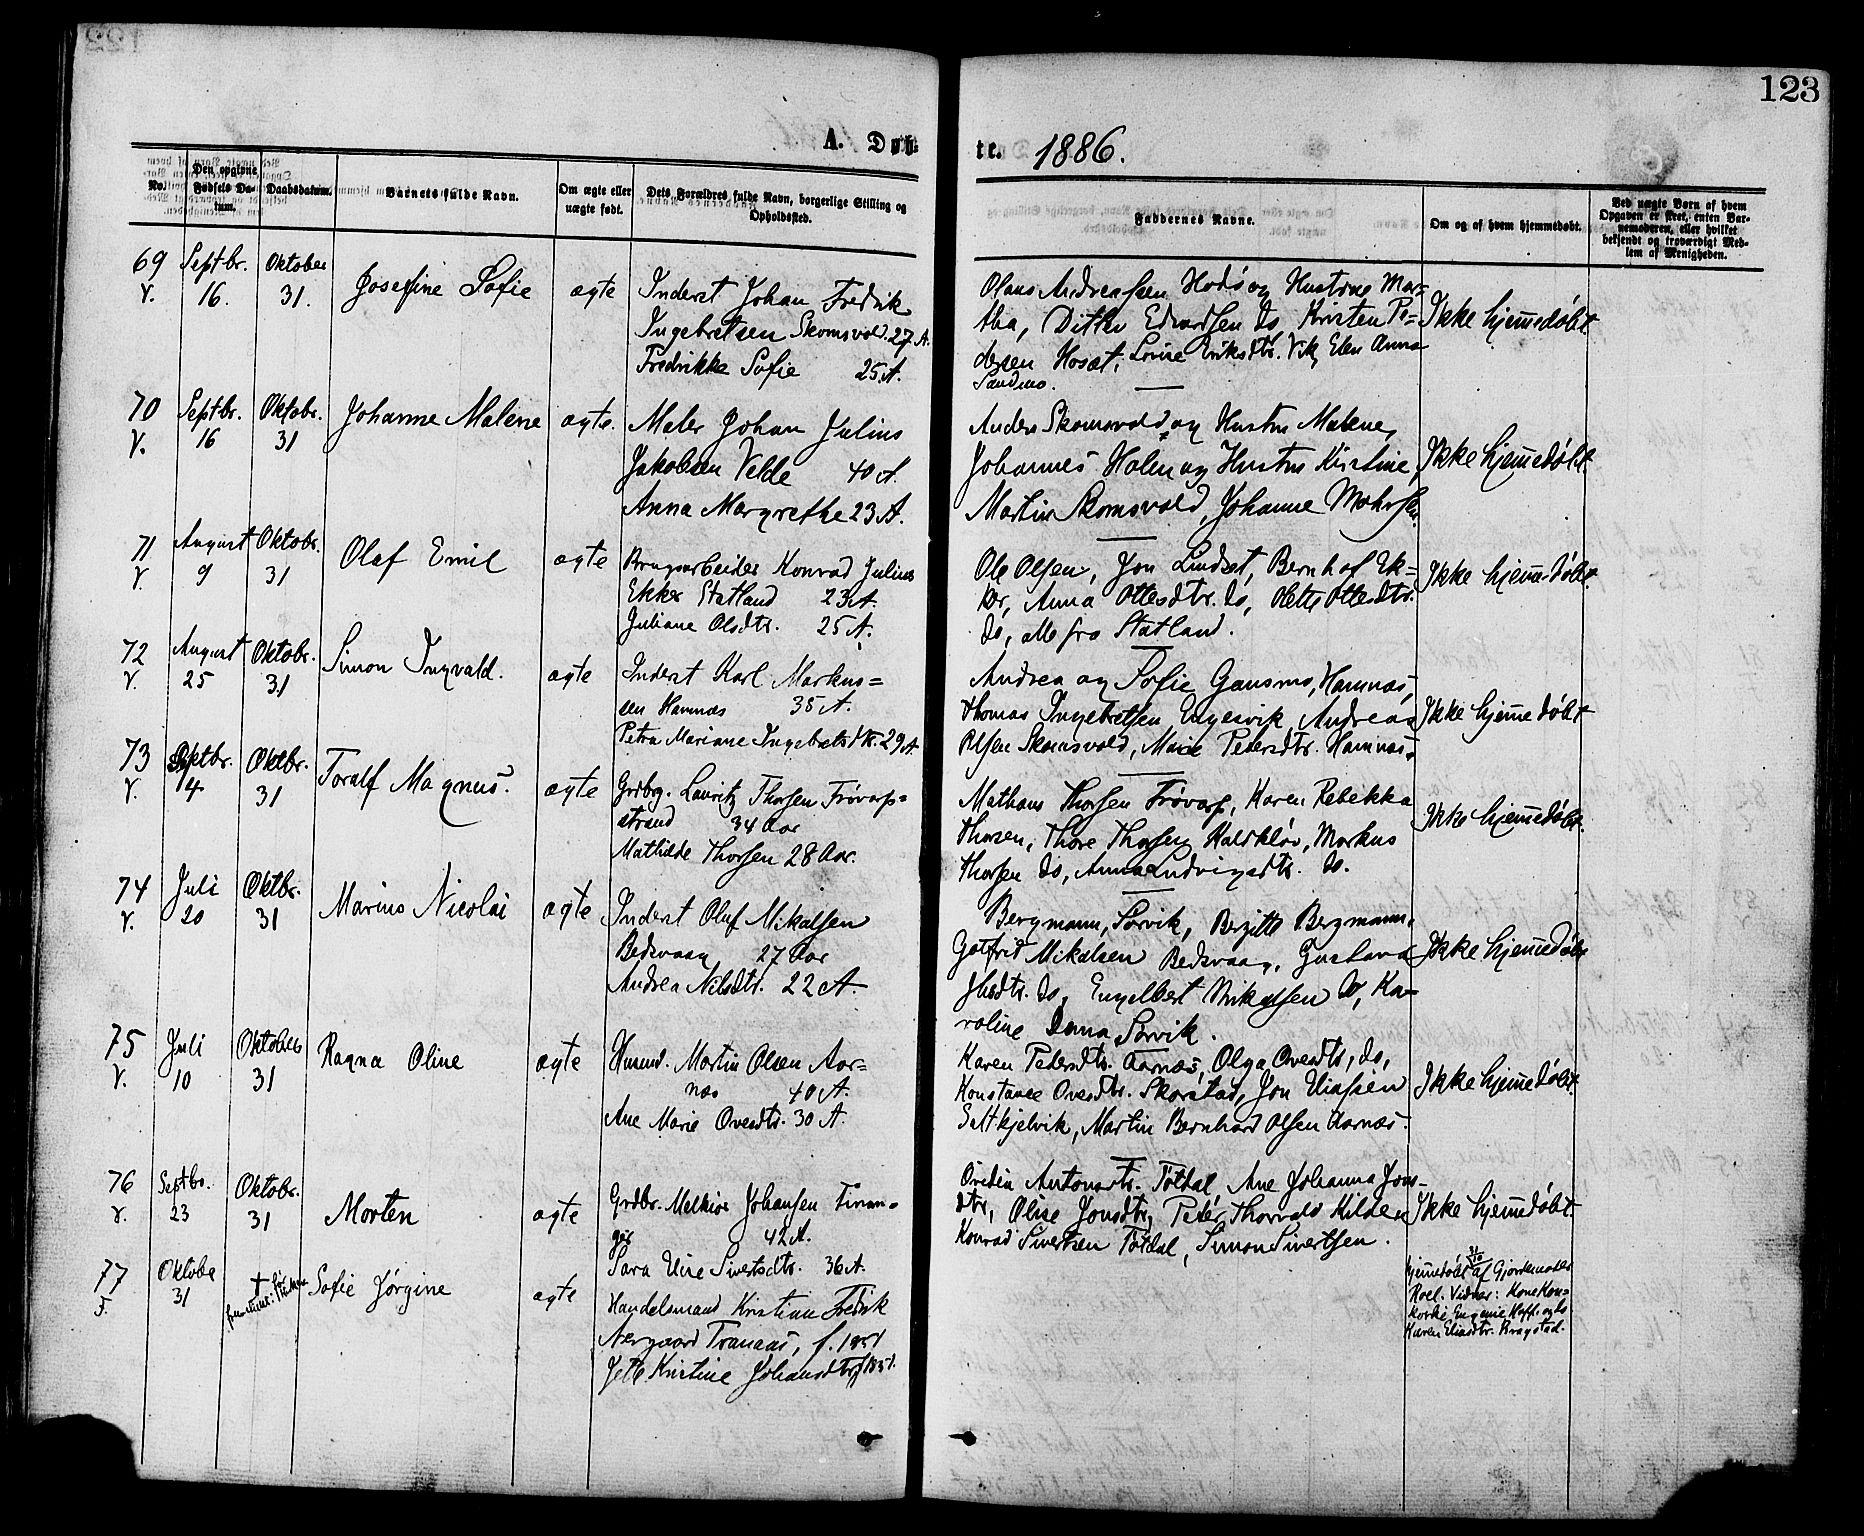 123
A. Døb-
te. 1886.
No.
Den opgivne Fødsels Datum.
Daabsdatum.
Barnets fulde Navn.
Om ægte eller uægte født.
Dets Forældres fulde Navn, borgerlige Stilling og Opholdssted.
Faddernes Navne.
Om og af hvem hjemmedøbt.
Ved uægte Børn af hvem Opgaven er skeet, enten Barnemoderen, eller hvilket bekjendt og troværdigt Medlem af Menigheden.
69 Septbr. Oktober
V. 16. 31. Josefine Sofie ægte Inderst Johan Fredrik
Ingebretsen Skomsvold 27 A.
Fredrikke Sofie 25 A.
Olaus Andreassen Hodø og Hustrue Mar=
tha, Edvardsen do, Kristen Pe=
dersen Hosæt, Lovise Eriksdtr. Vik, Elen Anna
Sandmo.
Ikke hjemedøbt.
70 Septbr. Oktobr.
V. 16 31 Johanne Malene ægte. Maler Johan Julius
Jakobsen Velde 40 A.
Anna Margrethe 23 A.
Anders Skomsvold og Hustru Malene,
Johannes Holen og Hustru Kirstine,
Martin Skomsvold, Johanne
Ikke hjemedøbt.
71 August Oktobr.
V. 9 31 Olaf Emil ægte Brugsarbeider Konrad Julius
Ekker Statland 23 A.
Juliane Olsdtr. 25 A.
Ole Olsen, Jon Lindset, Bernhof Ek=
ker, Anna Ottesdtr. do, Olette Ottesdtr.
do, alle fra Statland.
Ikke hjemedøbt.
72 August Oktobr.
V. 25 31 Simon Ingvald. ægte Inderst Karl Markus=
sen Hamnæs 35 A.
Petra Mariane Ingebretsdtr. 29 A.
Andrea og Sofie Gansmo, Hamnæs,
Thomas Ingebretsen Engesvik, Andreas
Olsen Skomsvold, Marie Petersdtr. Hamnæs.
Ikke hjemedøbt
73 Septbr. Oktbr.
V. 14 31 Toralf Magnus. ægte Grdbrg. Lauritz Thorsen Frøvarp=
strand 34 Aar
Mathilde Thorsen 28 Aar.
Mathæus Thorsen Frøvarp, Karen Rebekka
Thorsen, Thore Thorsen Kaldkløv, Markus
Thorsen do, Anna Ludvigsdtr. do.
Ikke hjemedøbt.
74 Juli Oktbr.
V. 20 31 Marius Nicolai ægte Inderst Oluf Mikalsen
Bedsvaag 27 Aar
Andrea Nilsdtr. 22 A.
Bergmann, Sørvik, Bergitte Bergmann,
Gotfrid Mikalsen Bedsvaag, Gustava
do, Engelbert Mikalsen do, Ka=
roline Anna Sørvik.
Ikke hjemedøbt
75 Juli Oktober
V. 10 31 Ragna Oline ægte Husmd. Martin Olsen Aar=
næs 40 A.
Ane Marie Ovesdtr. 30 A.
Karen Petersdtr. Aarnæs, Olga Ovesdtr, do,
Konstance Ovesdtr. Skorstad, Jon Eliassen
Saltkjelvik, Martin Bernhard Olsen Aarnæs.
Ikke hjemedøbt.
76 Septbr. Oktobr.
V. 23 31 Morten ægte Grdbr. Melkior Johansen Finan=
ger 42 A.
Sara Sivertsdtr. 36 A.
Ovidia Antonsdtr. Tøtdal, Ane Johanna Jons=
dtr, Olise Jonsdtr, Peter Thorvald Kilden
Konrad Sivertsen Tøtdal, Simon Sivertsen.
Ikke hjemedøbt.
77 Oktober
F. 31 † Sofie Jørgine ægte Handelsmand Kristian Fredrik
Nergaard Tranaas, f. 1851
Jette Kristine Johansdtr. f 1851.
hjemedøbt 31/10 af Gjordemoder
Roel. Vidner: Kone Kon=
kordie Eugenie Hoff og do
Karen Eliasdtr. Bragstad.